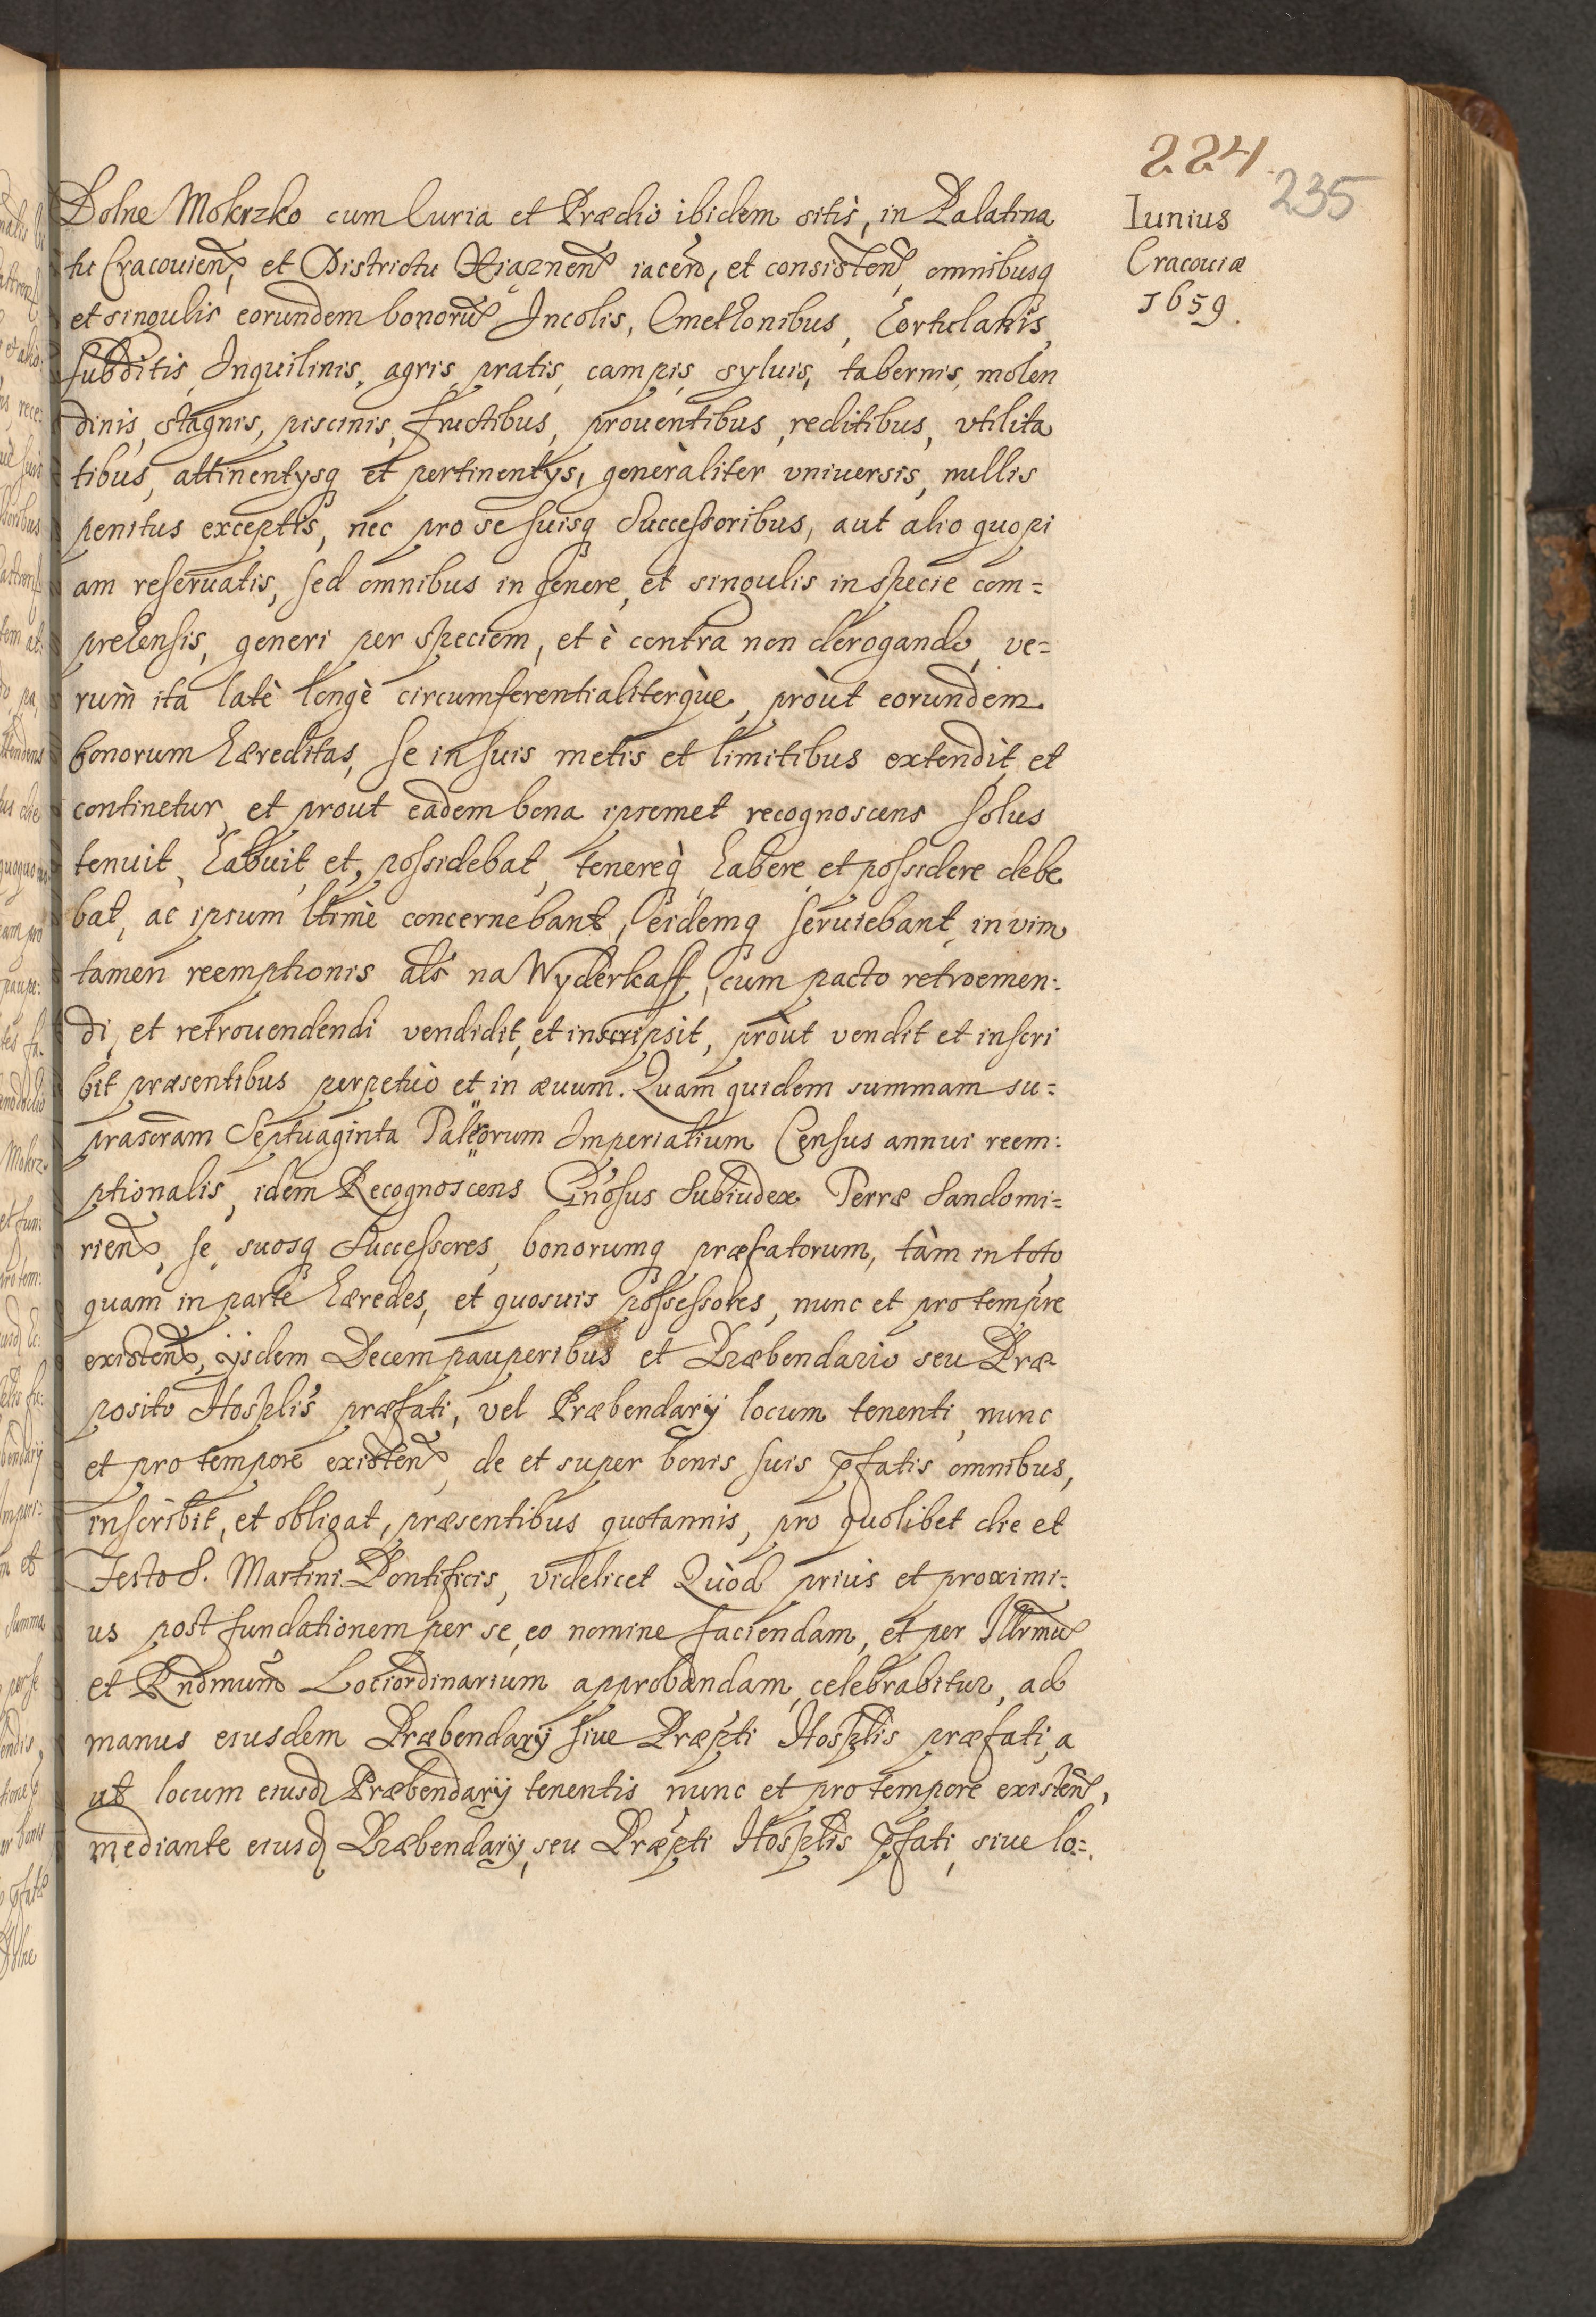 224
235
Iunius
Cracouiæ
1659.
Dolne Mokrzko cum Curia et Prædio ibidem sitis, in Palatina
tu Cracouien, et Districtu Xiąznen iacen, et consisten, omnibusq
et singulis eorundem bonorũ Incolis, Cmethonibus, hortulanis,
subditis, Inquilinis, agris, pratis, campis, syluis, tabernis, molen
dinis, stagnis, piscinis, fructibus, prouentibus, reditibus, vtilita
tibus, attinentysq et pertinentys, generaliter vniuersis, nullis
penitus exceptis, nec pro se suisq Successoribus, aut alio quopi
am reseruatis, sed omnibus in genere, et singulis in specie com=
prehensis, generi per speciem, et è contra non derogando, ve=
rum ita latè longè circumferentialiterque, prout eorundem
bonorum hæreditas, se in suis metis et limitibus extendit, et
continetur, et prout eadem bona ipsemet recognoscens solus
tenuit, habuit, et possidebat, tenereq habere et possidere debe
bat, ac ipsum ltimè concernebant, eidemq seruiebant, in vim
tamen reemptionis als na Wyderkaff, cum pacto retroemen:
di, et retrouendendi vendidit, et inscripsit, prout vendit et inscri
bit præsentibus perpetuò et in æuum. Quam quidem summam su=
prascram Septuaginta Talerorum Imperialium Census annui reem:
ptionalis, idem Recognoscens Gnosus Subiudex Terræ Sandomi=
rien, se, suosq Successores, bonorumq præfatorum, tàm in toto
quam in parte hæredes, et quosuis possessores, nunc et pro tempre
existen, ijsdem Decem pauperibus et Præbendario seu Præ
posito Hosplis præfati, vel Præbendarij locum tenenti, nunc
et pro tempore existen, de et super bonis suis pfatis omnibus,
inscribit, et obligat, præsentibus quotannis, pro quolibet die et
Festo S. Martini Pontificis, videlicet Quòd prius et proximi=
us post fundationem per se, eo nomine faciendam, et per Illrmũ
et Rndmum Lociordinarium approbandam, celebrabitur, ad
manus eiusdem Præbendarij siue Præpti Hosplis præfati, a
ut locum eiusd Præbendarij tenentis nunc et pro tempore existen,
mediante eiusd Præbendarij, seu Præpti Hosplis pfati, siue lo=